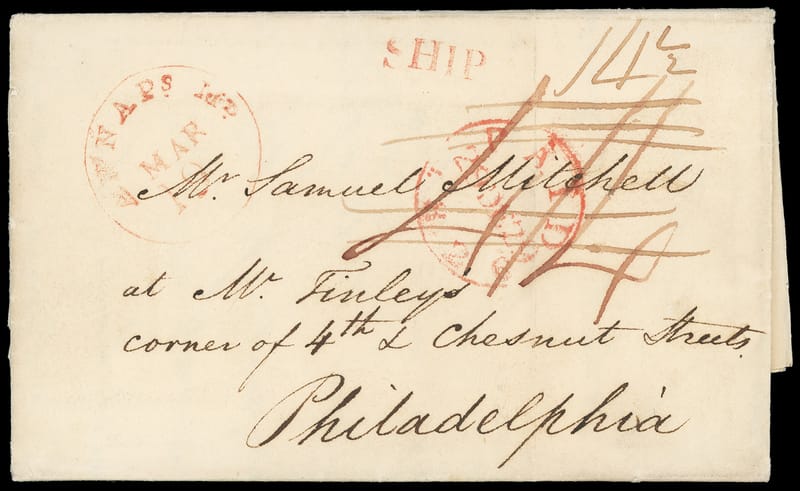 SHIP
14½
ANNAPS Md.
MAR
PAID
Mr. Samuel Mitchell
at Mr. Finley's
corner of 4th & Chesnut Streets.
Philadelphia